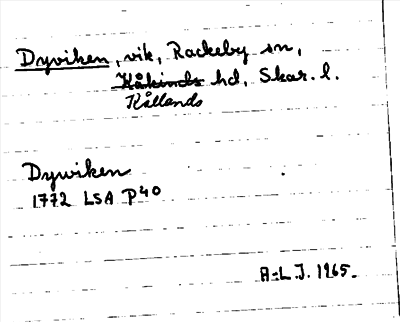 Dyviken, vik, Rackeby sn,
Kåkinds hd, Skar. l.
Kållands
Dywiken
1772 LSA P40
A-L J. 1965.